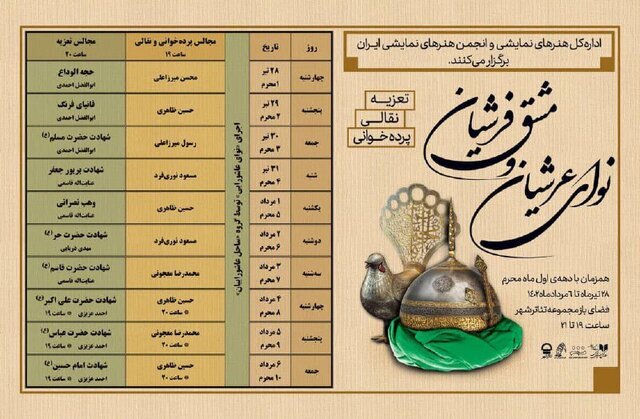 اداره‌کل هنرهای نمایشی و انجمن هنرهای نمایشی ایران
برگزار می‌کنند.
تعزیه
نقالی
پرده‌خوانی
مشق فرشیان
و
نوای عرشیان
همزمان با دهه‌ی اول ماه محرم
۲۸ تیرماه تا ۶ مردادماه ۱۴۰۲
فضای باز مجموعه تئاترشهر
ساعت ۱۹ تا ۲۱
روز
تاریخ
مجالس پرده‌خوانی و نقالی
ساعت ۱۹
مجالس تعزیه
ساعت ۲۰
اجرای «نوای عاشورایی» توسط گروه «ساحل عاشوراییان»
چهارشنبه
۲۸ تیر
۱ محرم
محسن میرزاعلی
حجه الوداع
ابوالفضل احمدی
پنجشنبه
۲۹ تیر
۲ محرم
حسین طاهری
فانیای فرنگ
ابوالفضل احمدی
جمعه
۳۰ تیر
۳ محرم
رسول میرزاعلی
شهادت حضرت مسلم (ع)
ابوالفضل احمدی
شنبه
۳۱ تیر
۴ محرم
مسعود نوری‌فرد
شهادت پرپور جعفر
عنایت‌اله قاسمی
یکشنبه
۱ مرداد
۵ محرم
حسین طاهری
وهب نصرانی
عنایت‌اله قاسمی
دوشنبه
۲ مرداد
۶ محرم
مسعود نوری‌فرد
شهادت حضرت حر (ع)
مهدی دریایی
سه‌شنبه
۳ مرداد
۷ محرم
محمدرضا معجونی
شهادت حضرت قاسم (ع)
عنایت‌اله قاسمی
چهارشنبه
۴ مرداد
۸ محرم
حسین طاهری
* ساعت ۲۰
شهادت حضرت علی اکبر (ع)
احمد عزیزی * ساعت ۱۹
پنجشنبه
۵ مرداد
۹ محرم
محمدرضا معجونی
* ساعت ۲۰
شهادت حضرت عباس (ع)
احمد عزیزی * ساعت ۱۹
جمعه
۶ مرداد
۱۰ محرم
حسین طاهری
* ساعت ۲۰
شهادت امام حسین (ع)
احمد عزیزی * ساعت ۱۹